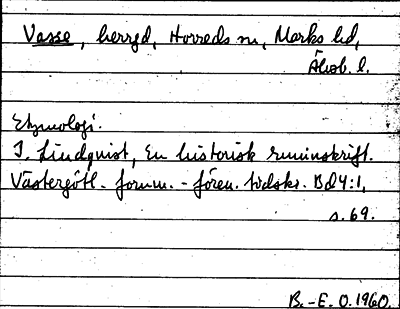 Vasse, herrgd, Horreds sn, Marks hd,
Älvsb. l.
Etymologi.
I. Lindqvist, En historisk runinskrift.
Västergötl. fornm.-fören. tidskr. Bd 4:1,
s. 69.
B.-E. O. 1960.